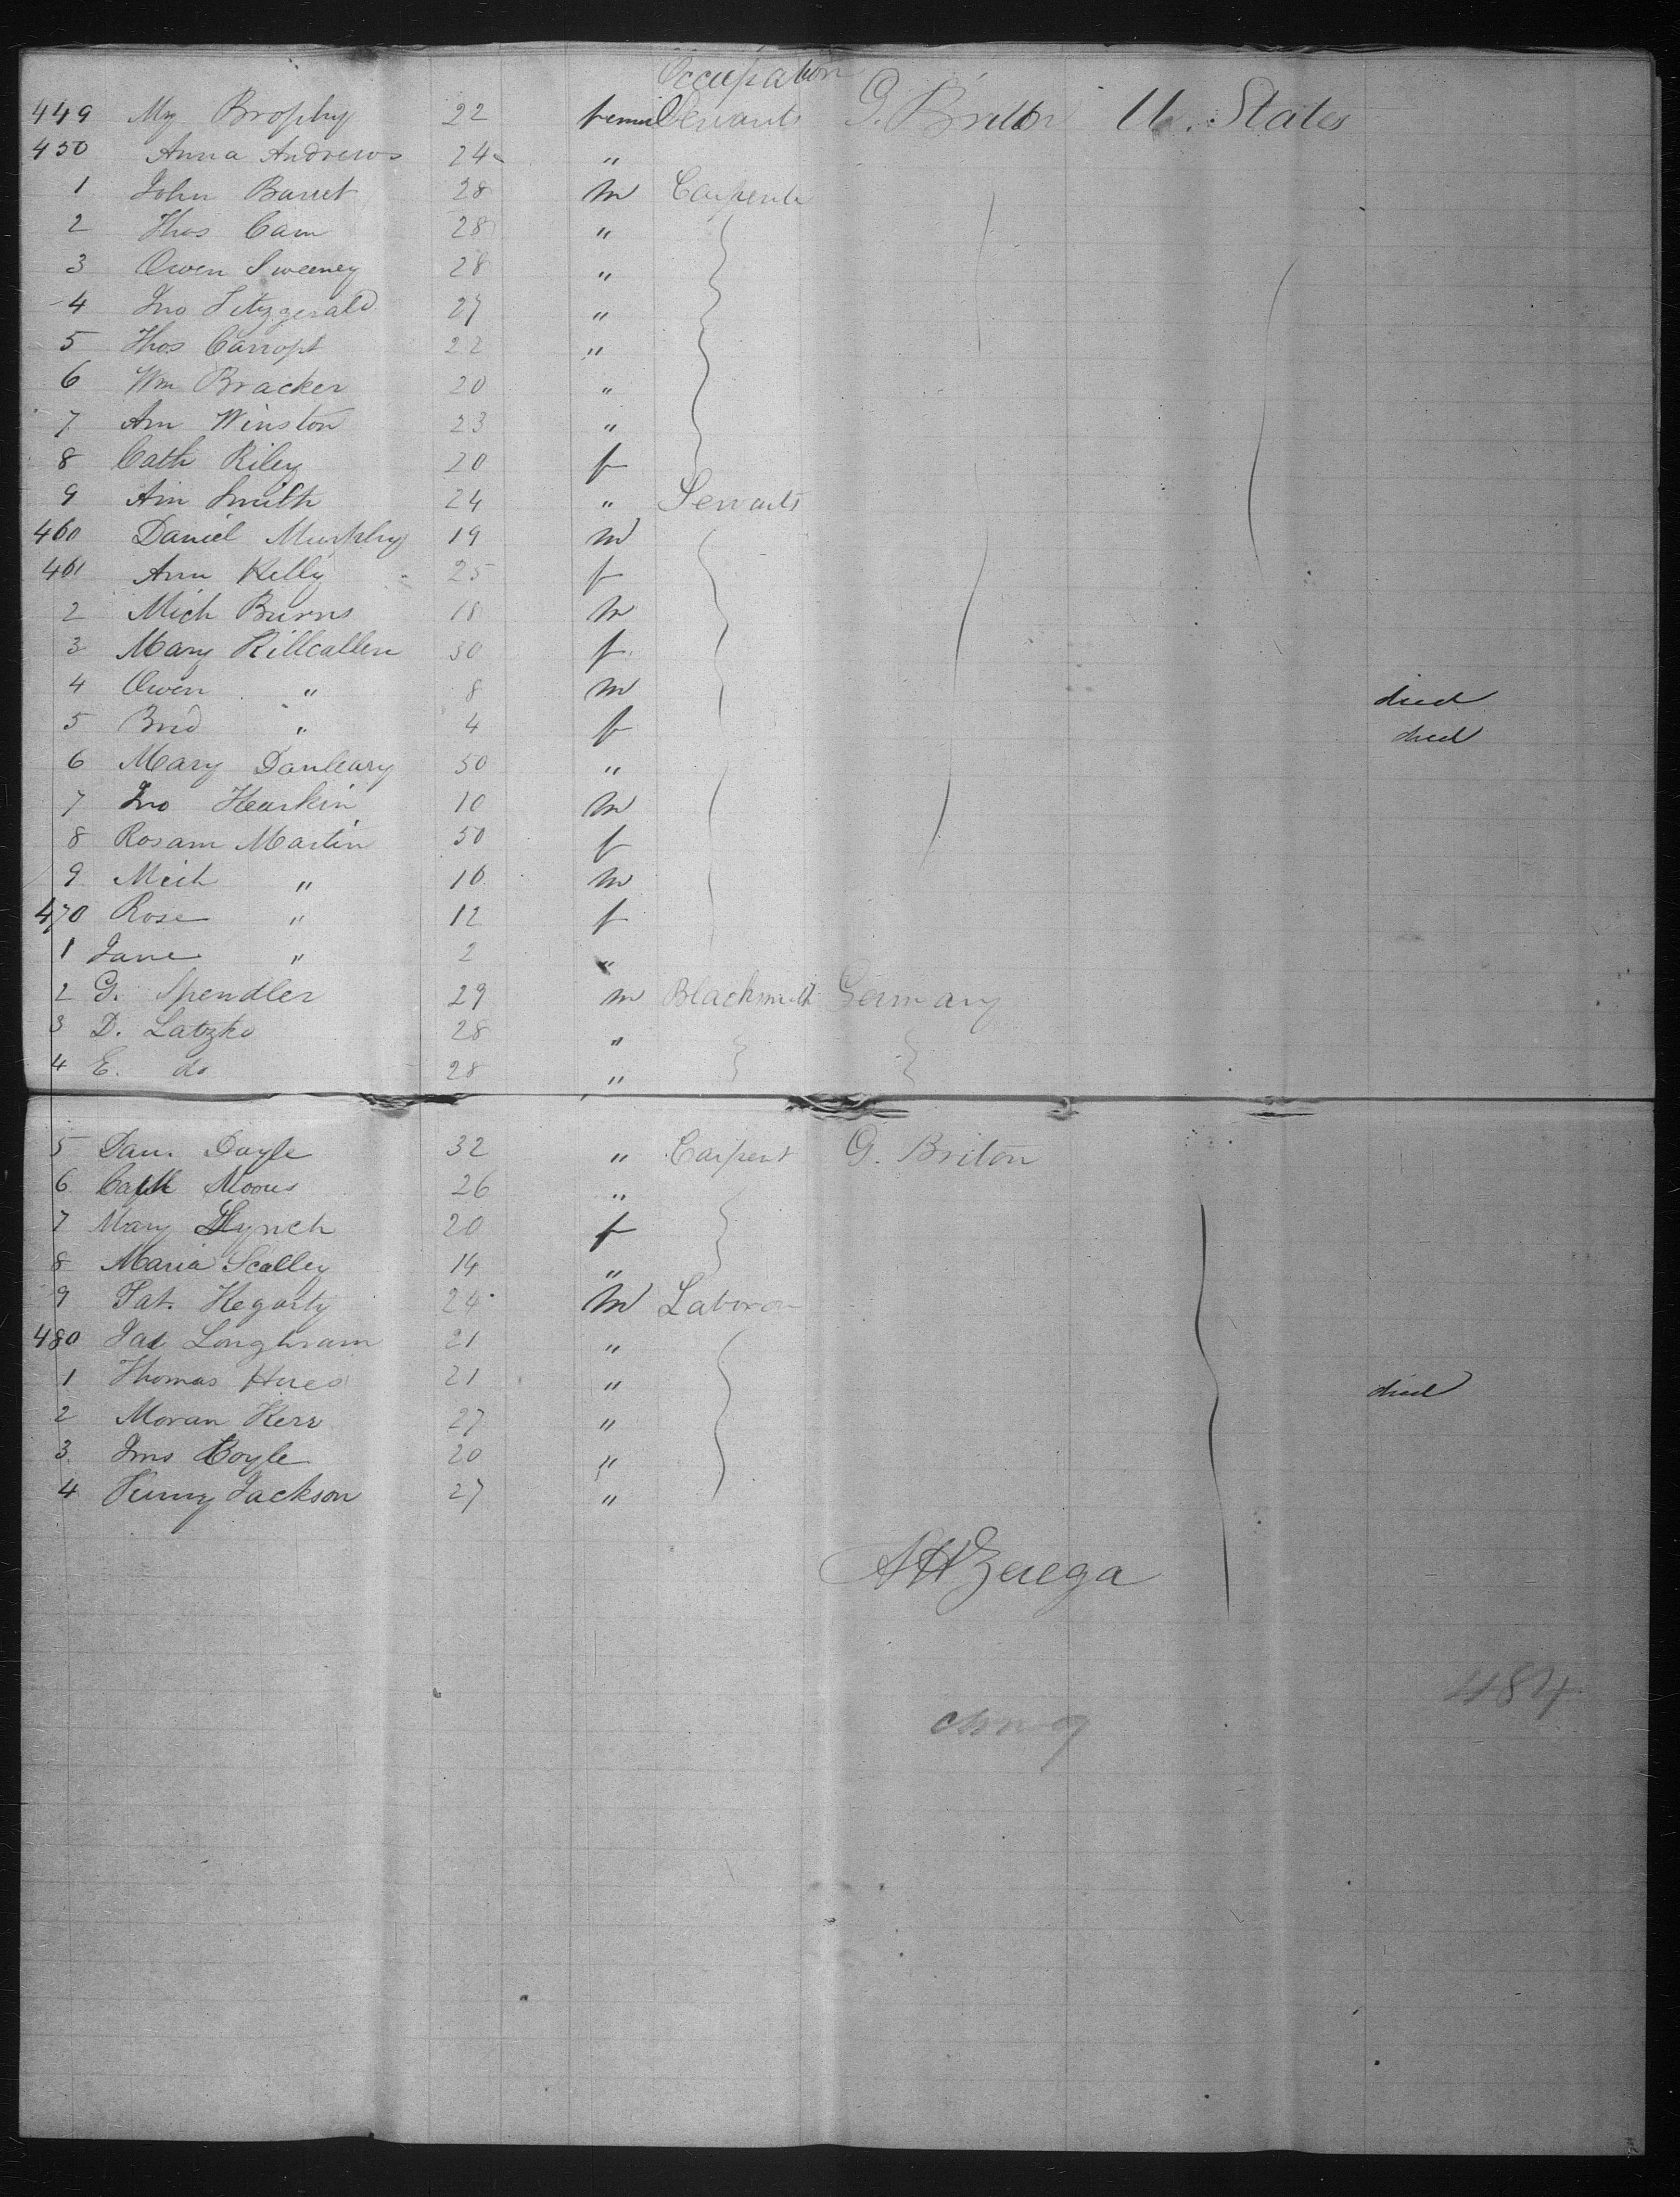 Occupation
449 My Brophy 22 femil Servants G. Britton U. States
450 Anna Andrews 24 "
1 John Barret 28 m Carpente
2 Thos Cam 28 "
3 Owen Sweeney 28 "
4 Jno Fitzgerald 27 "
5 Thos 22 "
6 Wm Bracker 20 "
7 Am Winston 23 "
8 Cath Riley 20 f
9 Am Smith 24 " Servants
460 Daniel Murphy 19 m
461 Ann Kelly 25 f
2 Mich Burns 18 m
3 Mary Killcallen 30 f
4 Owen " 8 m died
5 Brid " 4 f died
6 Mary Danleary 50 "
7 Jno Hearkin 10 m
8 Rosam Martin 50 f
9 Mich " 16 m
470 Rose " 12 f
1 Jane " 2 "
2 G. Spendler 29 m Blacksmith Germany
3 D. Latzko 28 "
4 E. do 28 "
5 Dam Doyle 32 " Carpent G. Briton
6 Moores 26 "
7 Mary Lynch 20 f
8 Maria Scalley 14 "
9 Pat. Hegarty 24 m Laboror
480 Longhram 21 "
1 Thomas Hues 21 " died
2 Moran Kerr 27 "
3 Jms Boyle 20 "
4 Jackson 27 "
A H Zerega
484